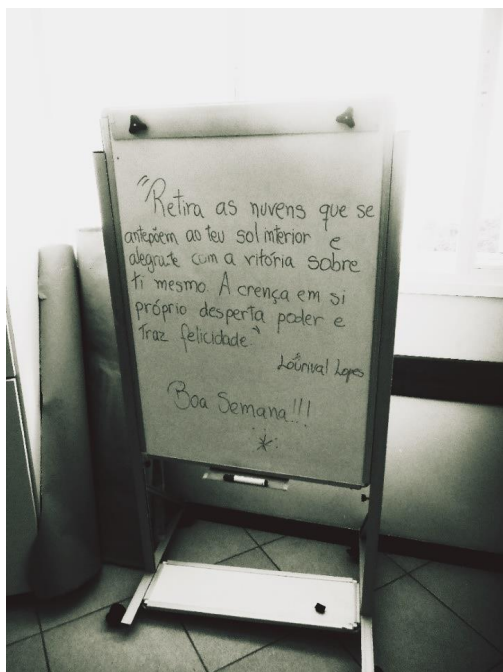 "Retira as nuvens que se
antepõem ao teu sol interior e
alegra-te com a vitória sobre
ti mesmo. A crença em si
próprio desperta poder e
traz felicidade."
Lourival Lopes
Boa Semana!!!